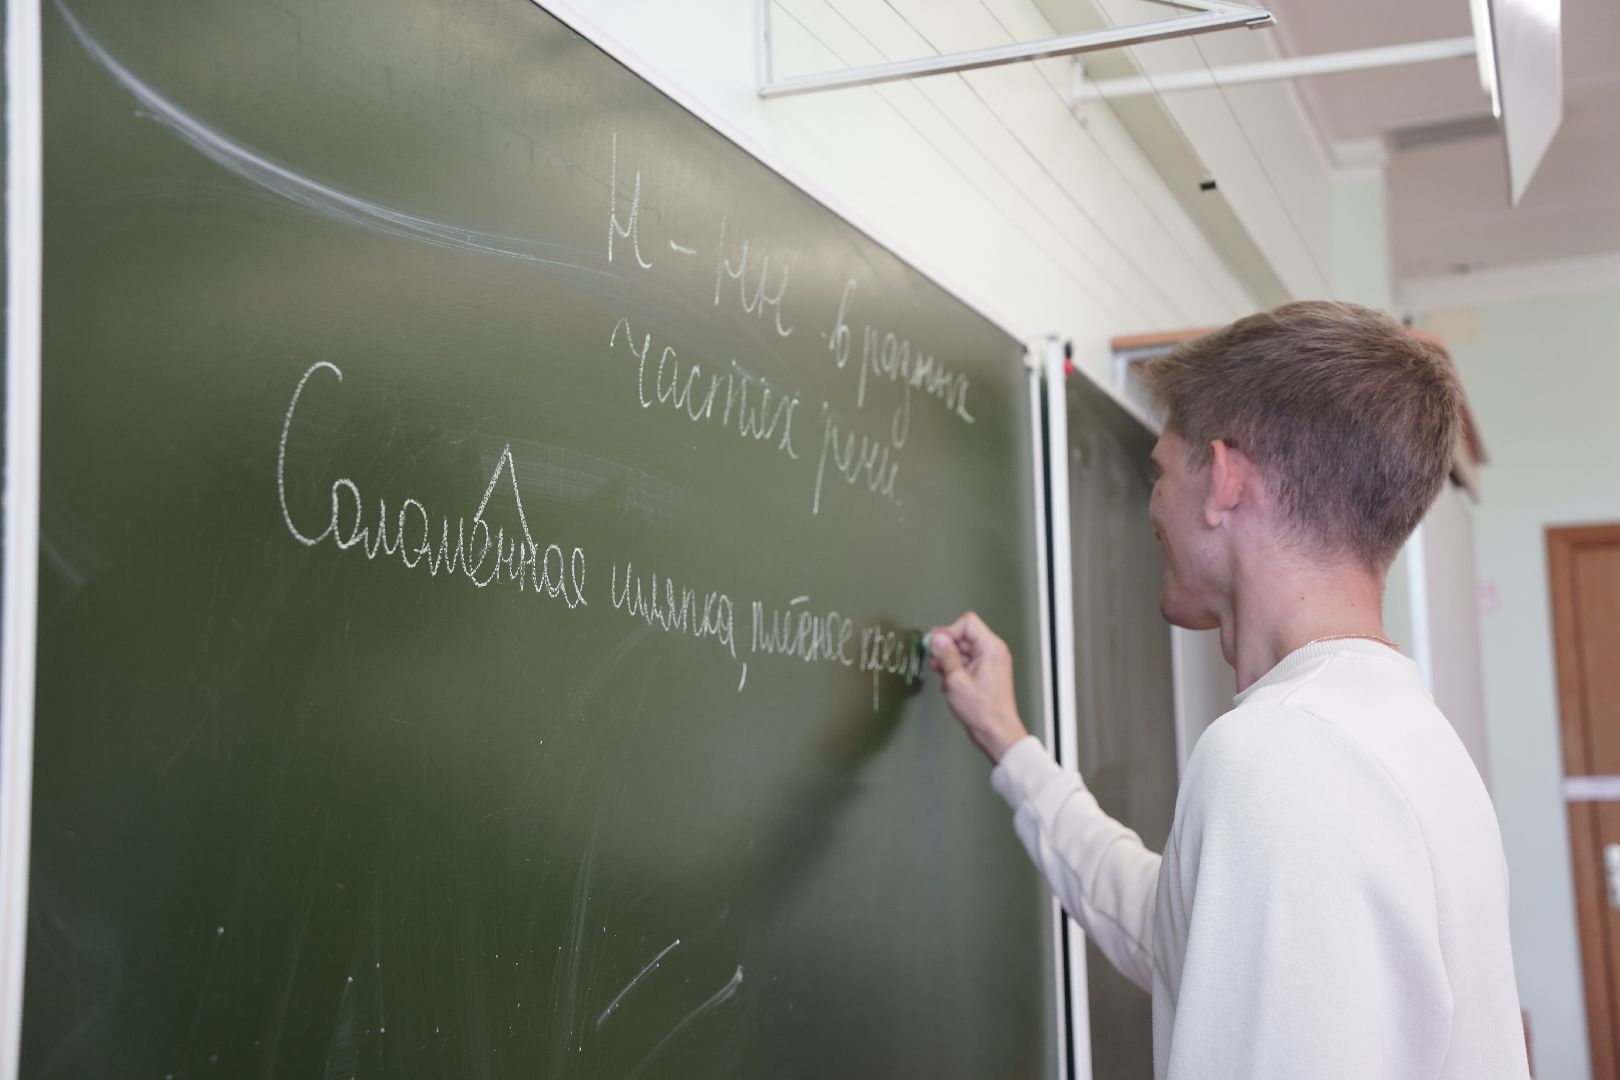 Н-НН в разных
частях речи.
Соломенная шляпка, плетёное крес